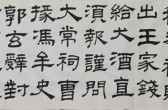 出王家錢
給大酒直
須報謹問
大常祠曹
掾馮牟史
郭玄辭對